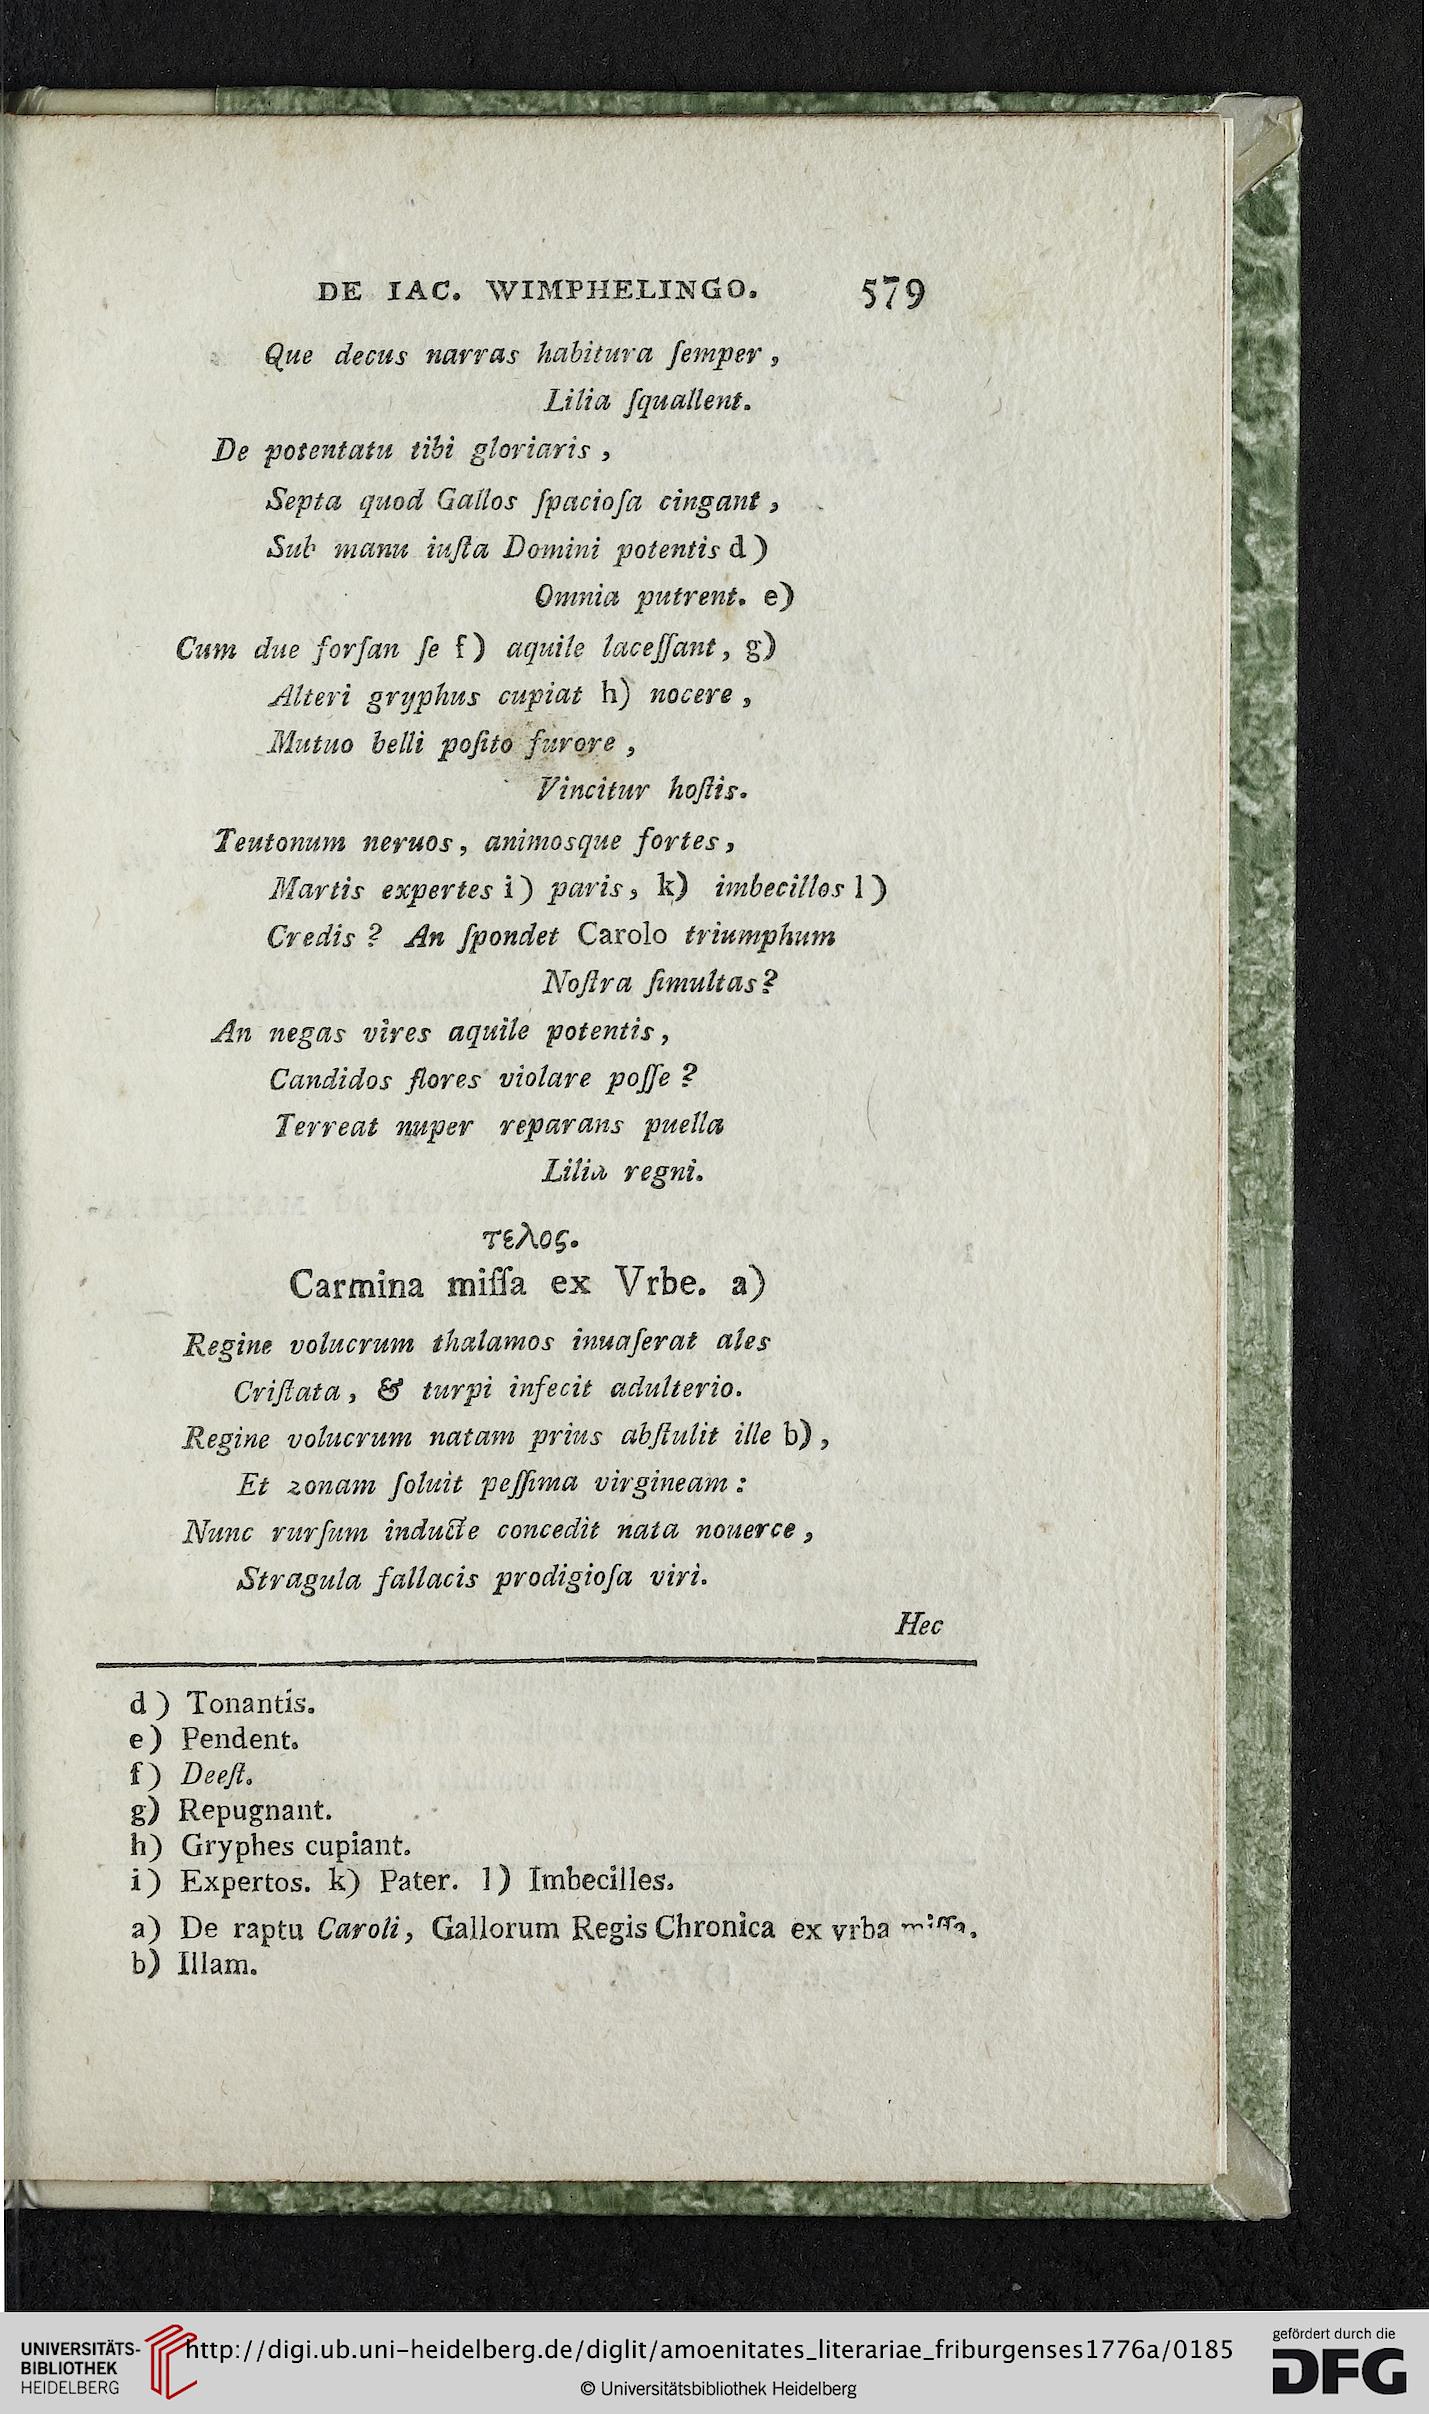 DE IAC. WIMPHELINGO. 579
Que decus narras habitura ſemper,
Lilia ſquallent.
De potentatu tibi gloriaris,
Septa quod Gallos ſpacioſa cingant,
Sub manu iuſta Domini potentis d)
Omnia putrent. e)
Cum due forſan ſe f) aquile laceſſant, g)
Alteri gryphus cupiat h) nocere,
Mutuo belli poſito furore,
Vincitur hoſtis.
Teutonum neruos, animosque fortes,
Martis expertes i) paris, k) imbecillos l)
Credis? An ſpondet Carolo triumphum
Noſtra ſimultas?
An negas vires aquile potentis,
Candidos flores violare poſſe?
Terreat nuper reparans puella
Lilia regni.
τελος.
Carmina miſſa ex Vrbe. a)
Regine volucrum thalamos inuaſerat ales
Criſtata, & turpi infecit adulterio.
Regine volucrum natam prius abſtulit ille b),
Et zonam ſoluit peſſima virgineam:
Nunc rurſum inducte concedit nata nouerce,
Stragula fallacis prodigioſa viri.
Hec
d) Tonantis.
e) Pendent.
f) Deeſt.
g) Repugnant.
h) Gryphes cupiant.
i) Expertos. k) Pater. l) Imbecilles.
a) De raptu Caroli, Gallorum Regis Chronica ex vrba miſſa.
b) Illam.
UNIVERSITÄTS-
BIBLIOTHEK
HEIDELBERG
http://digi.ub.uni-heidelberg.de/diglit/amoenitates_literariae_friburgenses1776a/0185
© Universitätsbibliothek Heidelberg
gefördert durch die
DFG